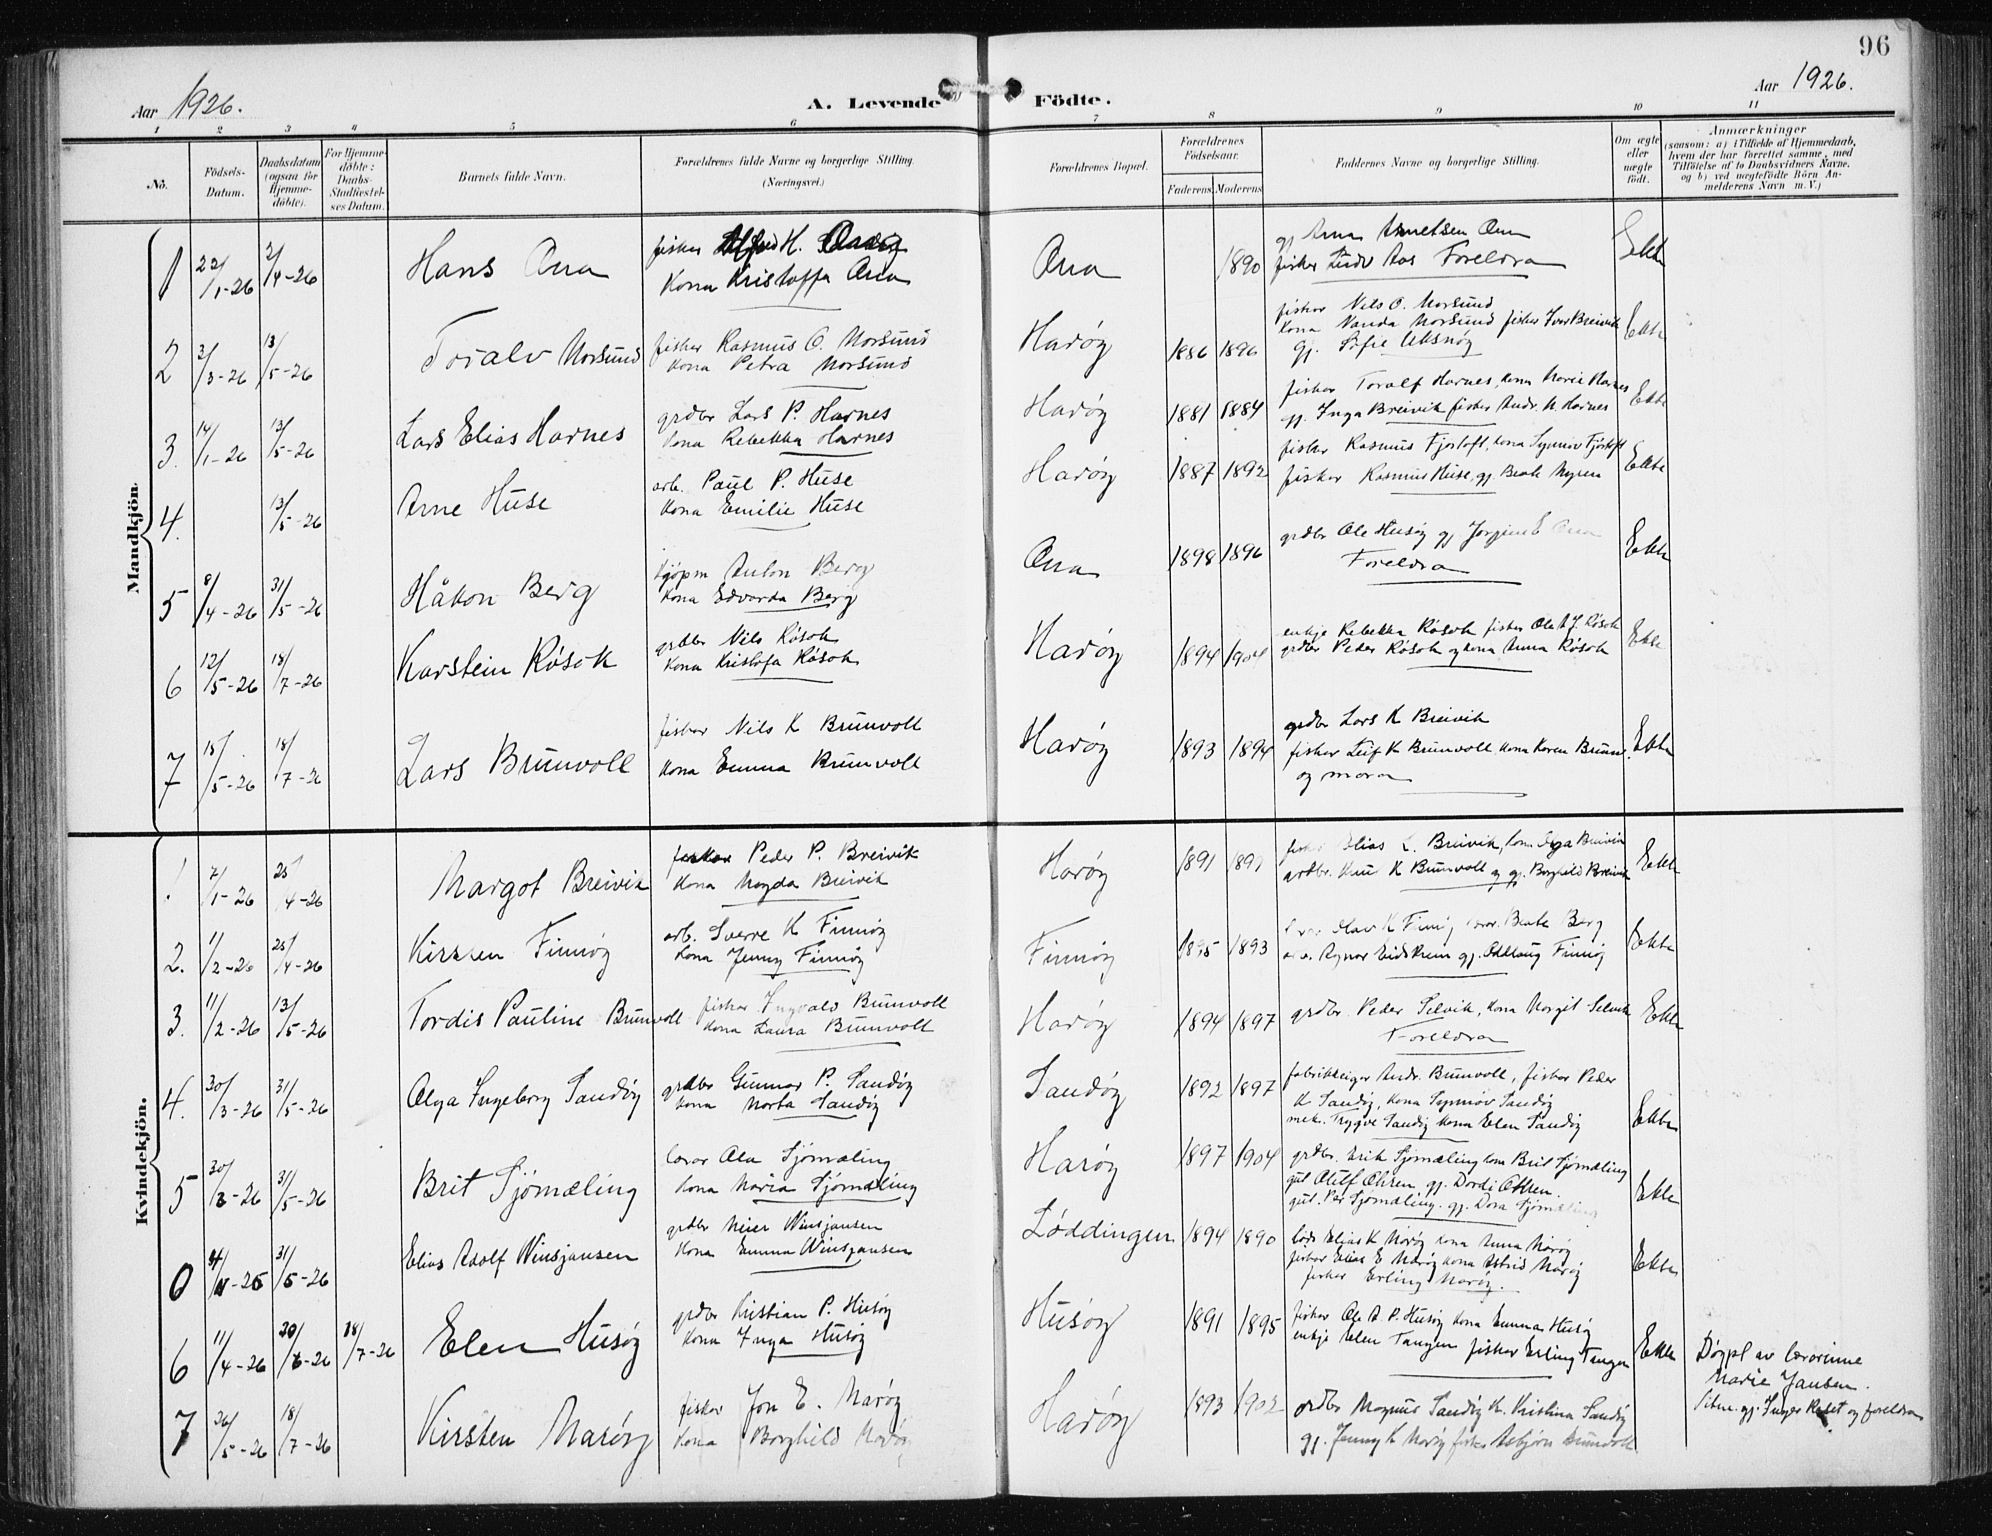 96
Aar 1926.
A. Levende Födte.
Aar 1926.
1 2 3 4 5 6 7 8 9 10 11
No.
Födsels-Datum.
Daabsdatum (ogsaa for Hjemme-döbte).
For Hjemme-döbte: Daabs-Stadfæstel-ses Datum.
Barnets fulde Navn.
Forældrenes fulde Navne og borgerlige Stilling. (Næringsvei.)
Forældrenes Bopæl.
Forældrenes Födselsaar.
Faderens Moderens
Faddernes Navne og borgerlige Stilling.
Om ægte eller uægte födt.
Anmærkninger
(saasom: a) i Tilfælde af Hjemmedaab, hvem der har forrettet samme, med Tilföielse af to Daabsvidners Navne, og b) ved uægtefödte Börn Anmelderens Navn m. V.)
Mandkjön.
1 22/1-26 2/4-26 Hans Ona
fisker Alfred H.
Kona Kristoffa Ona
Ona 1890
gj Arna Ona
fisker Aas Foreldra
Ekte
2 2/3-26 13/5-26 Toralv Morsund
fisker Rasmus O. Morsund
Kona Petra Morsund
Harøy 1886 1896
fisker Nils O. Morsund
Kona Vanda Morsund fisker Ivar Breivik
gj. Sofie Uksnøy
Ekte
3. 14/1-26 13/5-26 Lars Elias Harnes
grdbr Lars P. Harnes
Kona Rebekka Harnes
Harøy 1881 1884
fisker Toralf Harnes, kona Marie Harnes
gj. Inga Breivik fisker Andr. K. Harnes
Ekte
4. 13/5-26 Arne Huse
arb. Paul P. Huse
Kona Emilie Huse
Harøy 1887 1892
fisker Rasmus Fjørtoft, kona Synnøv Fjørtoft
fisker Rasmus Huse, gj. Beate Myren
Ekte
5 8/4-26 31/5-26 Håkon Berg
kjøpm Anton Berg
Kona Edvarda Berg
Ona 1898 1896
grdbr Ole Husøy gj Ona
Foreldra
Ekte
6 12/5-26 18/7-26 Karstein Røsok
grdbr Nils Røsok
Kona Kristofa Røsok
Harøy 1894 1904
enkje Rebekka Røsok fisker Ole Røsok
grdbr Peder Røsok og kona Anna Røsok
Ekte
7 18/5-26 18/7-26 Lars Brunvoll
fisker Nils K Brunvoll
Kona Emma Brunvoll
Harøy 1893 1894
grdbr Lars K Breivik
fisker Leif K Brunvoll kona Karen Brunv.
og mora
Ekte
Kvindekjön.
1 7/1-26 25/4-26 Margot Breivik
fisker Peder P. Breivik
Kona Magda Breivik
Harøy 1891
Elias L. Breivik, kona Olga Breivik
grdbr. Knu K Brunvoll og gj. Borghild Breivik
Ekte
2. 11/2-26 25/4-26 Kirsten Finnøy
arb. Sverre K Finnøy
Kona Jenny Finnøy
Finnøy 1895 1893
Olav K Finnøy Beate Berg
Ragnar Eidskrem gj. Oddlaug Finnøy
Ekte
3. 11/2-26 13/5-26 Tordis Pauline Brunvoll
fisker Ingvald Brunvoll
Kona Laura Brunvoll
Harøy 1894 1897
grdbr. Peder Selvik, kona Margit Selvik
Foreldra
Ekte
4. 30/3-26 31/5-26 Olga Ingeborg Sandøy
grdbr Gunnar P. Sandøy
Kona Marta Sandøy
Sandøy 1892 1897
fabrikkeigar Andr. Brunvoll, fisker Peder
K Sandøy, kona Synnøv Sandøy
mek. Trygve Sandøy kona Elen Sandøy
Ekte
5 30/3-26 31/5-26 Brit Sjømæling
lærar Ola Sjømæling
Kona Maria Sjømæling
Harøy 1897 1904
grdbr. Erik Sjømæling kona Brit Sjømæling
gut Ohren gj. Dordi Ohren.
gut. Per Sjømæling. gj. Dora Sjømæling
Ekte
0 31/5-26 Elias Adolf Winsjansen
grdbr Meier Winsjansen
Kona Emma Winsjansen
Løddingen 1894 1890
lods Elias K Marøy kona Anna Marøy
fisker Elias E Marøy kona Astrid Marøy
fisker Erling Marøy.
Ekte
6 11/4-26 20/6-26 18/7-26 Elen Husøy
grdbr Kristian P. Husøy
Kona Inga Husøy
Husøy 1891 1895
fisker Ole A. P. Husøy kona Emma Husøy
enkje Elen Tangen fisker Erling Tangen
Ekte
Døypt av lærarinne
Marie Jansen.
Vitne. gj. Inger Røset og foreldra
7 26/5-26 18/7-26 Kirsten Marøy
fisker Jon E. Marøy
Kona Borghild Marøy
Harøy 1893 1902
grdbr Magnus Sandøy k. Kristina Sandøy
gj. Jenny K Marøy fisker Asbjørn Brunvoll